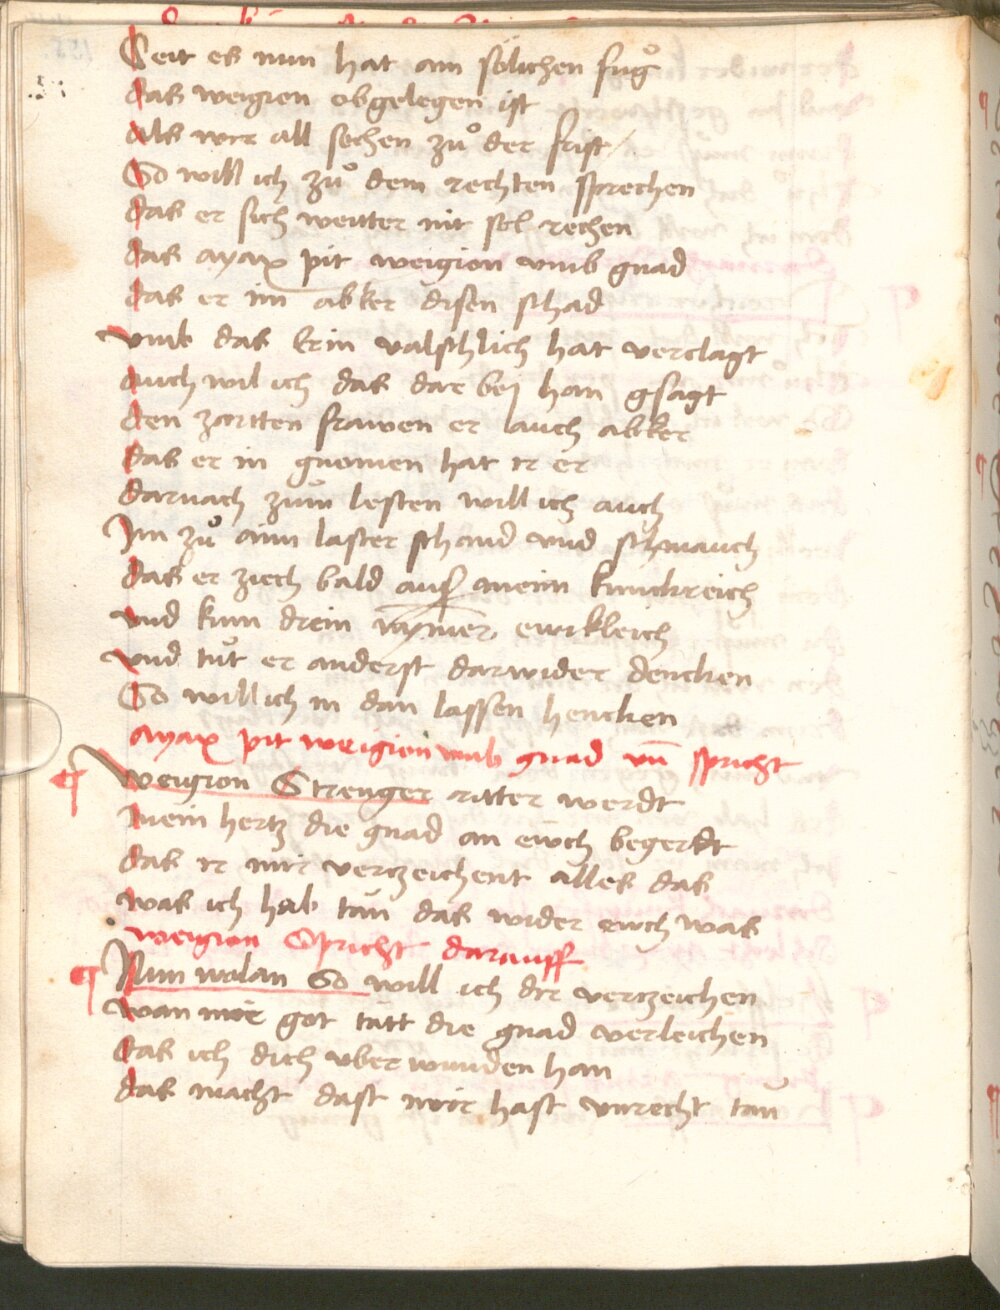 Seit es nun hat am sölichen fuͦg
das weigion obgelegen ist
als wir all sechen zuͦ der frist
So will ich zuͦ dem rechten sprechen
das er sich weitter nit sol rechen
das ayax pit weigion vmb gnad
das er im abker disen schad
vmb das Er in valschlich hat verclagt
auch wil ich das dar beÿ han gsagt
den zartten frawen er auch abker
das er in gnomen hat ir er
darnach zum lesten will ich auch
Im zuͦ aim laster schand vnd schmauch
das er ziech bald aus meim kunckreich
vnd kum drein nymer ewikleich
vnd tuͦt er anderst darwider dencken
So will ich in dan lassen hencken
ayax pit weigion vmb gnad vn̄ spricht
¶ Weigion Strenger ritter werdt
Mein hertz die gnad an ewch begerdt
das ir mir verczeichent alles das
was ich hab tan das wider ewch was
weigion Spricht darauff
¶ Nun wolan So will ich dir verczeichen
wan mir got tätt die gnad verleichen
das ich dich vber wunden han
das macht dast mir hast vnrecht tan